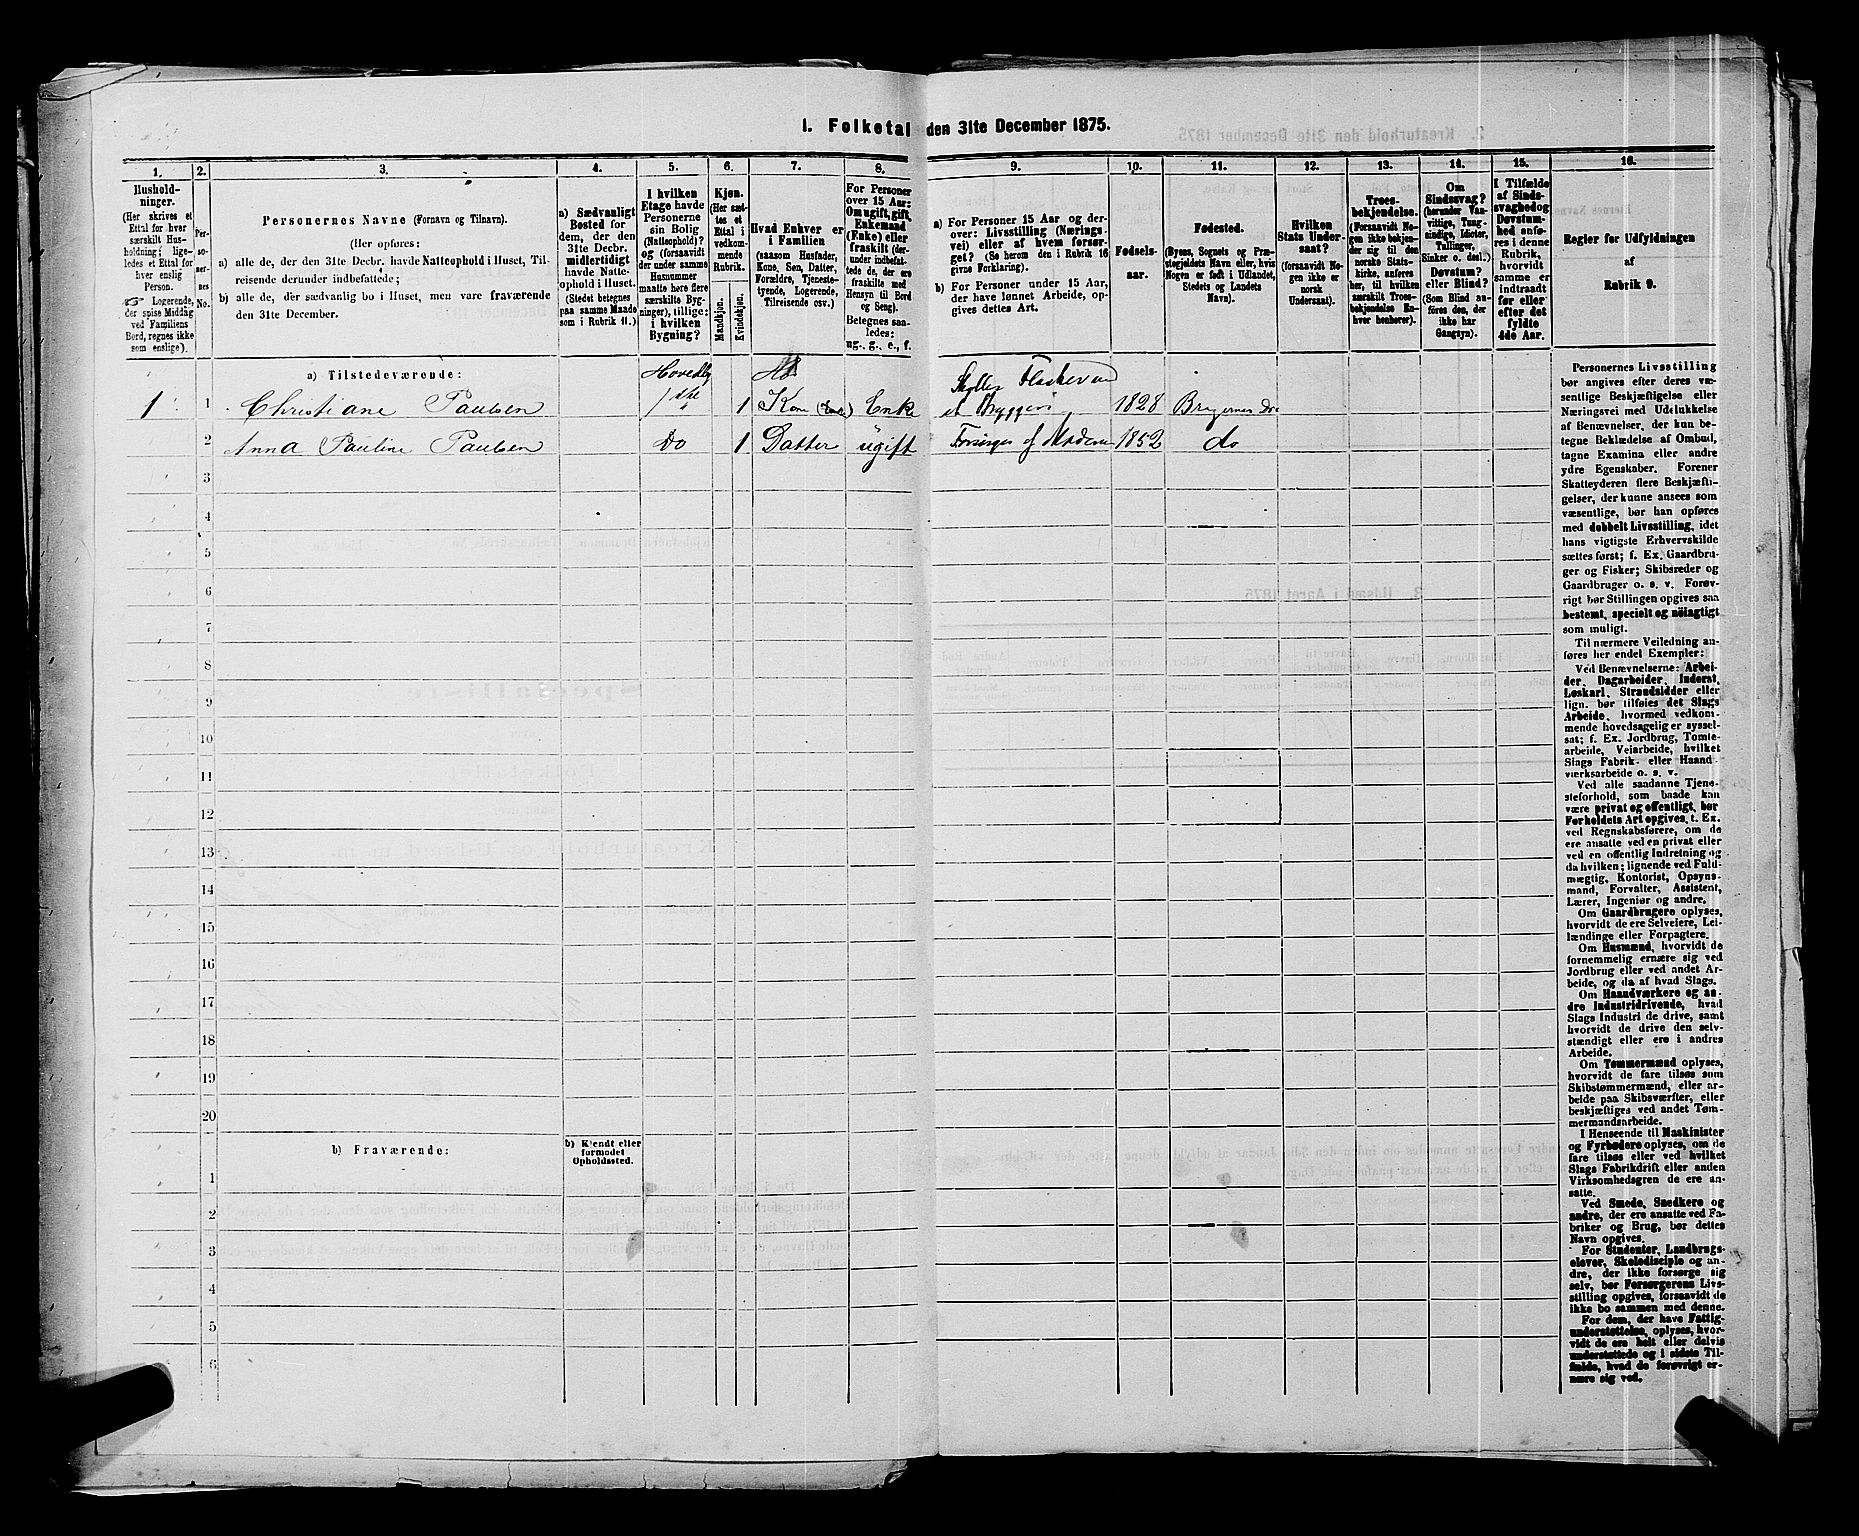 1. Folketal den 31te December 1875.
1. 2. 3. 4. 5. 6. 7. 8. 9. 10. 11. 12. 13. 14. 15. 16.
Hushold-
ninger.
(Her skrives et
Ettal for hver
særskilt Hus-
holdning; lige-
ledes et Ettal for
hver enslig
Person.
Logerende,
der spise Middag
ved Familiens
Bord, regnes ikke
som enslige).
Per-
so-
ner-
nes
No.
Personernes Navne (Fornavn og Tilnavn).
(Her opføres:
a) alle de, der den 31te Decbr. havde Natteophold i Huset, Til-
reisende derunder indbefattede;
b) alle de, der sædvanlig bo i Huset, men vare fraværende
den 31te December.
a) Sædvanligt
Bosted for
dem, der den
31te Decbr.
midlertidigt
havde Natte-
ophold i Huset.
(Stedet betegnes
paa samme Maade
som i Rubrik 11.)
I hvilken
Etage havde
Personerne
sin Bolig
(Natteophold)?
og (forsaavidt
der under samme
Husnummer
maatte høre flere
særskilte Byg-
ninger), tillige:
i hvilken
Bygning?
Kjøn.
(Her sæt-
tes et
Ettal i
vedkom-
mende
Rubrik.
Mandkjøn.
Kvindekjøn.
Hvad Enhver er
i Familien
(saasom Husfader,
Kone, Søn, Datter,
Forældre, Tjeneste-
tyende, Logerende,
Tilreisende osv.)
For Personer
over 15 Aar:
Om ugift, gift,
Enkemand
(Enke) eller
fraskilt (der-
under indbefat-
tede de, der ere
fraskilte med
Hensyn til Bord
og Seng).
Betegnes saa-
ledes:
ug., g., e., f.
a) For Personer 15 Aar og der-
over: Livsstilling (Nærings-
vei) eller af hvem forsør-
get? (Se herom den i Rubrik 16
givne Forklaring).
b) For Personer under 15 Aar,
der have lønnet Arbeide, op-
gives dettes Art.
Fødsels-
aar.
Fødested.
(Byens, Sognets og Præ-
stegjeldets Navn eller, hvis
Nogen er født i Udlandet,
Stedets og Landets
Navn).
Hvilken
Stats Under-
saat?
(forsaavidt No-
gen ikke er
norsk
Undersaat).
Troes-
bekjendelse.
(Forsaavidt No-
gen ikke bekjen-
der sig til den
norske Stats-
kirke, anføres
her, til hvilken
særskilt Troes-
bekjendelse En-
hver henhører).
Om
Sindssvag?
(herunder Van-
vittige, Tung-
sindige, Idioter,
Tullinger,
Sinker o. desl.)
Døvstum?
eller Blind?
(Som Blind an-
føres den, der
ikke har
Gangsyn).
I Tilfælde
af Sinds-
svaghed og
Døvstum-
hed anfø-
res i denne
Rubrik,
hvorvidt
samme er
indtraadt
før eller
efter det
fyldte
4de Aar.
Regler for Udfyldningen
af
Rubrik 9.
a) Tilstedeværende: Hovedby
1 1 Christiane Paulsen 1ste 1 Kone (Enke) Enke Skyller Flasker ved et Bryggeri 1828 Bragernes Dr
2 Anna Pauline Paulsen Do 1 Datter ugift Forsørges af Moderen 1852 do
3
4
5
6
7
8
9
10
11
12
13
14
15
16
17
18
19
20
b) Fraværende:
b) Kjendt eller
formodet
Opholdssted.
1
2
3
4
5
6
Personernes Livsstilling
bør angives efter deres væ-
sentlige Beskjæftigelse eller
Næringsvei med Udelukkelse
af Benævnelser, der kun be-
tegne Beklædelse af Ombud,
tagne Examina eller andre
ydre Egenskaber. Forener
Skatteyderen flere Beskjæfti-
gelser, der kunne ansees som
væsentlige, bør han opføres
med dobbelt Livsstilling, idet
hans vigtigste Erhvervskilde
sættes først; f. Ex. Gaardbru-
ger og Fisker; Skibsreder og
Gaardbruger o. s. v. Forøv-
rigt bør Stillingen opgives saa
bestemt, specielt og nöiagtigt
som muligt.
Til nærmere Veiledning an-
føres her endel Exempler:
Ved Benævnelserne: Arbei-
der, Dagarbeider, Inderst,
Løskarl, Strandsidder eller
lign. bør tilføies det Slags
Arbeide, hvormed vedkom-
mende hovedsagelig er syssel-
sat; f. Ex. Jordbrug, Tomte-
arbeide, Veiarbeide, hvilket
Slags Fabrik- eller Haand-
værksarbeide o. s. v.
Ved alle saadanne Tjene-
steforhold, som baade kan
være privat og offentligt, bør
Forholdets Art opgives, t. Ex.
ved Regnskabsførere, om de
ere ansatte ved en privat eller
ved en offentlig Indretning og
da hvilken; lignende ved Fuld-
mægtig, Kontorist, Opsyns-
mand, Forvalter, Assistent,
Lærer, Ingeniør og andre.
Om Gaardbrugere oplyses,
hvorvidt de ere Selveiere, Lei-
lændinge eller Forpagtere.
Om Husmænd, hvorvidt de
fornemmelig ernære sig ved
Jordbrug eller ved andet Ar-
beide, og da af hvad Slags.
Om Haandværkere og an-
dre Industridrivende, hvad
Slags Industri de drive, samt
hvorvidt de drive den selv-
stændigt eller ere i andres
Arbeide.
Om Tømmermænd oplyses,
hvorvidt de fare tilsøs som
Skibstømmermænd, eller ar-
beide paa Skibsværfter, eller
beskjæftiges ved andet Tøm-
mermandsarbeide.
I Henseende til Maskinister
og Fyrbødere oplyses, om de
fare tilsøs eller ved hvilket
Slags Fabrikdrift eller anden
Virksomhedsgren de ere an-
satte.
Ved Smede, Snedkere og
andre, der ere ansatte ved Fa-
briker og Brug, bør dettes
Navn opgives.
For Studenter, Landbrugs-
elever, Skoledisciple og an-
dre, der ikke forsørge sig
selv, bør Forsørgerens Livs-
stilling opgives, forsaavidt de
ikke bo sammen med denne.
For dem, der have Fattig-
understøttelse, oplyses, hvor-
vidt de ere helt eller delvis
understøttede og i sidste Til-
fælde, hvad de forøvrigt er-
nære sig ved.